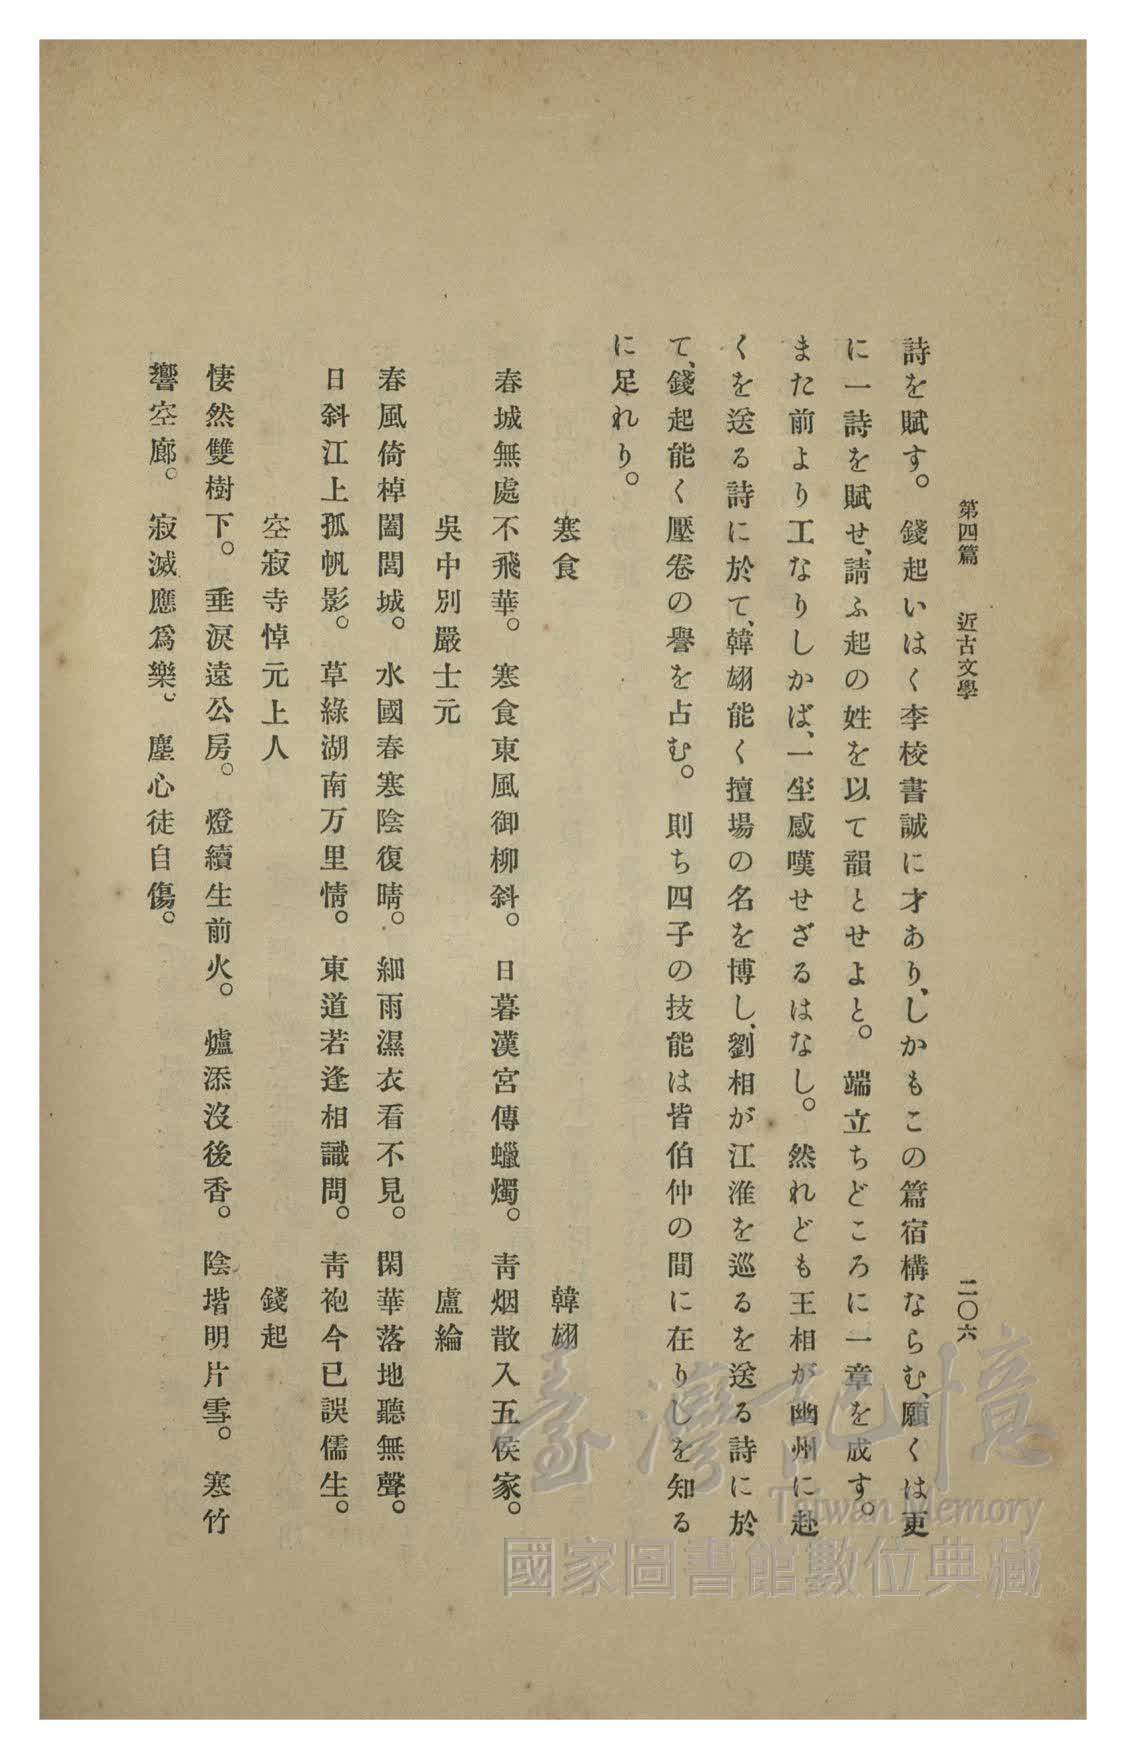 第四篇 近古文學 二〇六
詩を賦す。錢起いはく李校書誠に才あり、しかもこの篇宿構ならむ、願くは更
に一詩を賦せ、請ふ起の姓を以て韻とせよと。端立ちどころに一章を成す。
また前より工なりしかば、一坐感嘆せざるはなし。然れども王相が幽州に赴
くを送る詩に於て、韓翃能く擅場の名を博し、劉相が江淮を巡るを送る詩に於
て、錢起能く壓卷の譽を占む。則ち四子の技能は皆伯仲の間に在りしを知る
に足れり。
寒食 韓翃
春城無處不飛華。寒食東風御柳斜。日暮漢宮傳蠟燭。靑烟散入五侯家。
吳中別嚴士元 盧綸
春風倚棹闔閭城。水國春寒陰復晴。細雨濕衣看不見。閑華落地聽無聲。
日斜江上孤帆影。草綠湖南万里情。東道若逢相識問。靑袍今已誤儒生。
空寂寺悼元上人 錢起
悽然雙樹下。垂淚遠公房。燈續生前火。爐添沒後香。陰堦明片雪。寒竹
響空廊。寂滅應爲樂。塵心徒自傷。
臺灣記憶
Taiwan Memory
國家圖書館數位典藏